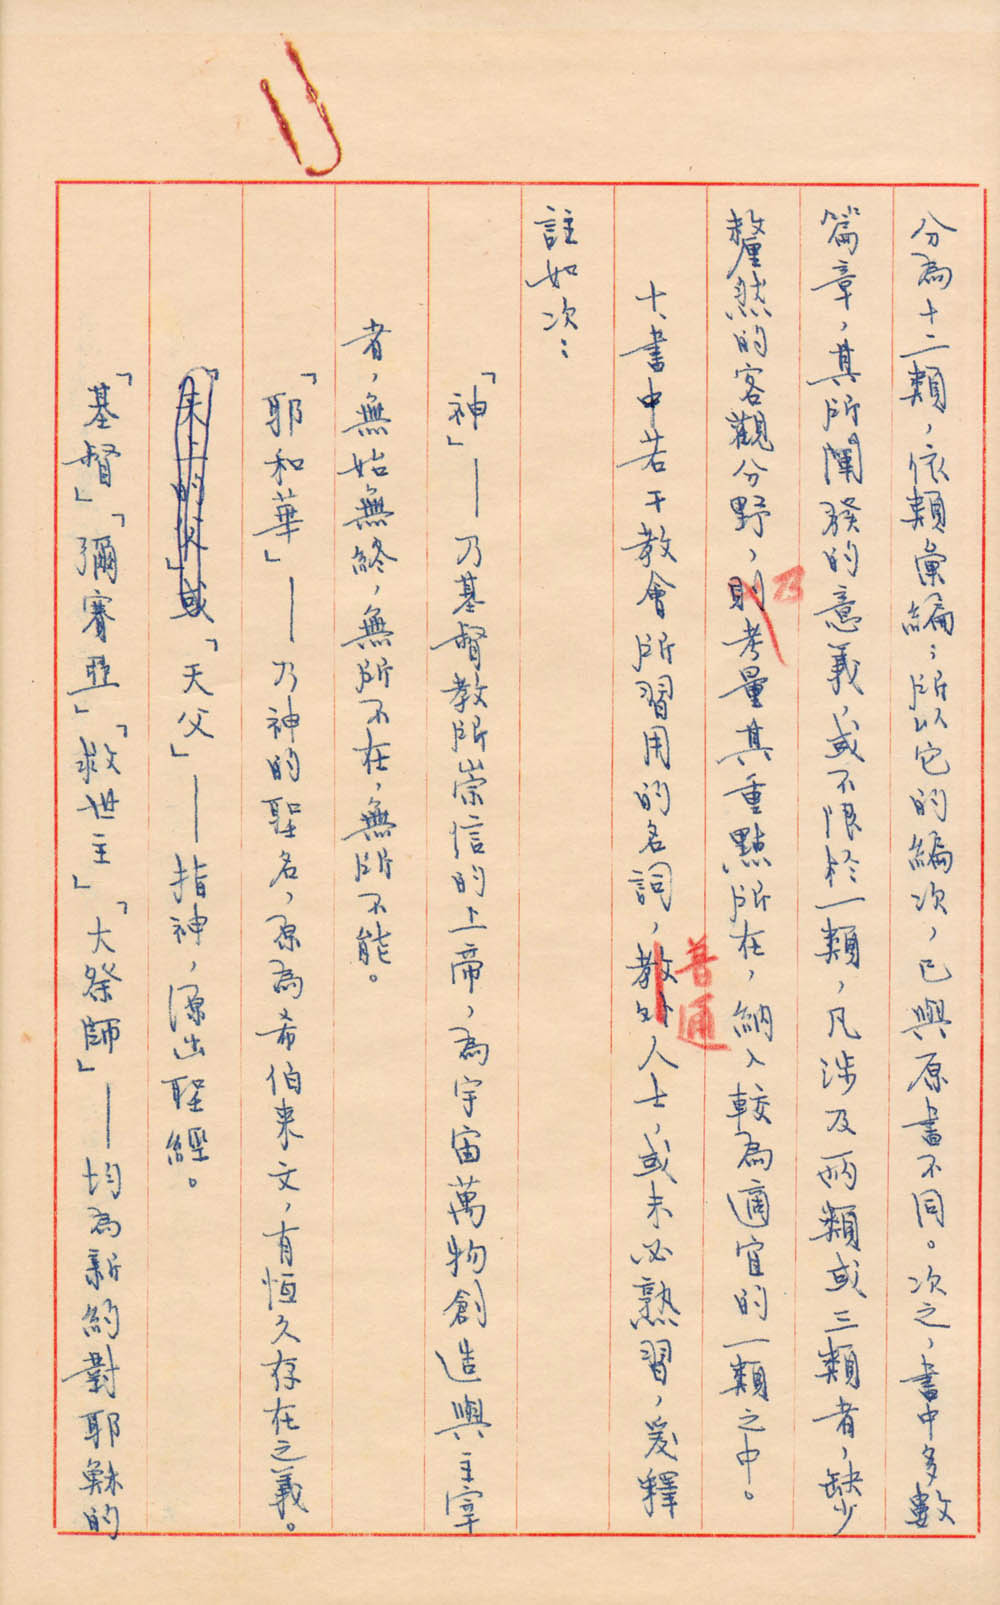 分為十二類，依類彙編；所以它的編次，已與原書不同。次之，書中多數
篇章，其所闡發的意義，或不限於一類，凡涉及兩類或三類者，缺少
釐然的客觀分野，則乃考量其重點所在，納入較為適宜的一類之中。
十、書中若干教會所習用的名詞，教外普通人士，或未必熟習，爰釋
註如次：
「神」——乃基督教所崇信的上帝，為宇宙萬物創造與主宰
者，無始無終，無所不在，無所不能。
「耶和華」——乃神的聖名，原為希伯來文，有恒久存在之義。
「天上的父」或「天父」——指神，源出聖經。
「基督」「彌賽亞」「救世主」「大祭師」——均為新約對耶穌的